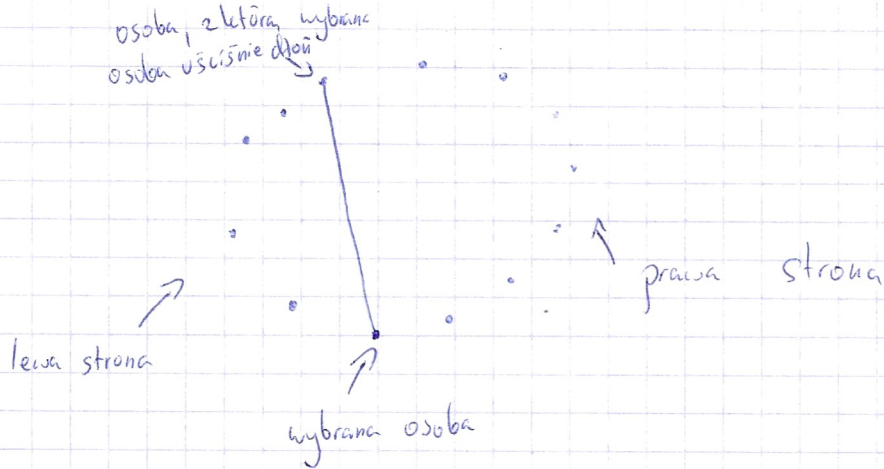 osoba, z którą wybrana
osoba uściśnie dłoń
prawa strona
lewa strona
wybrana osoba